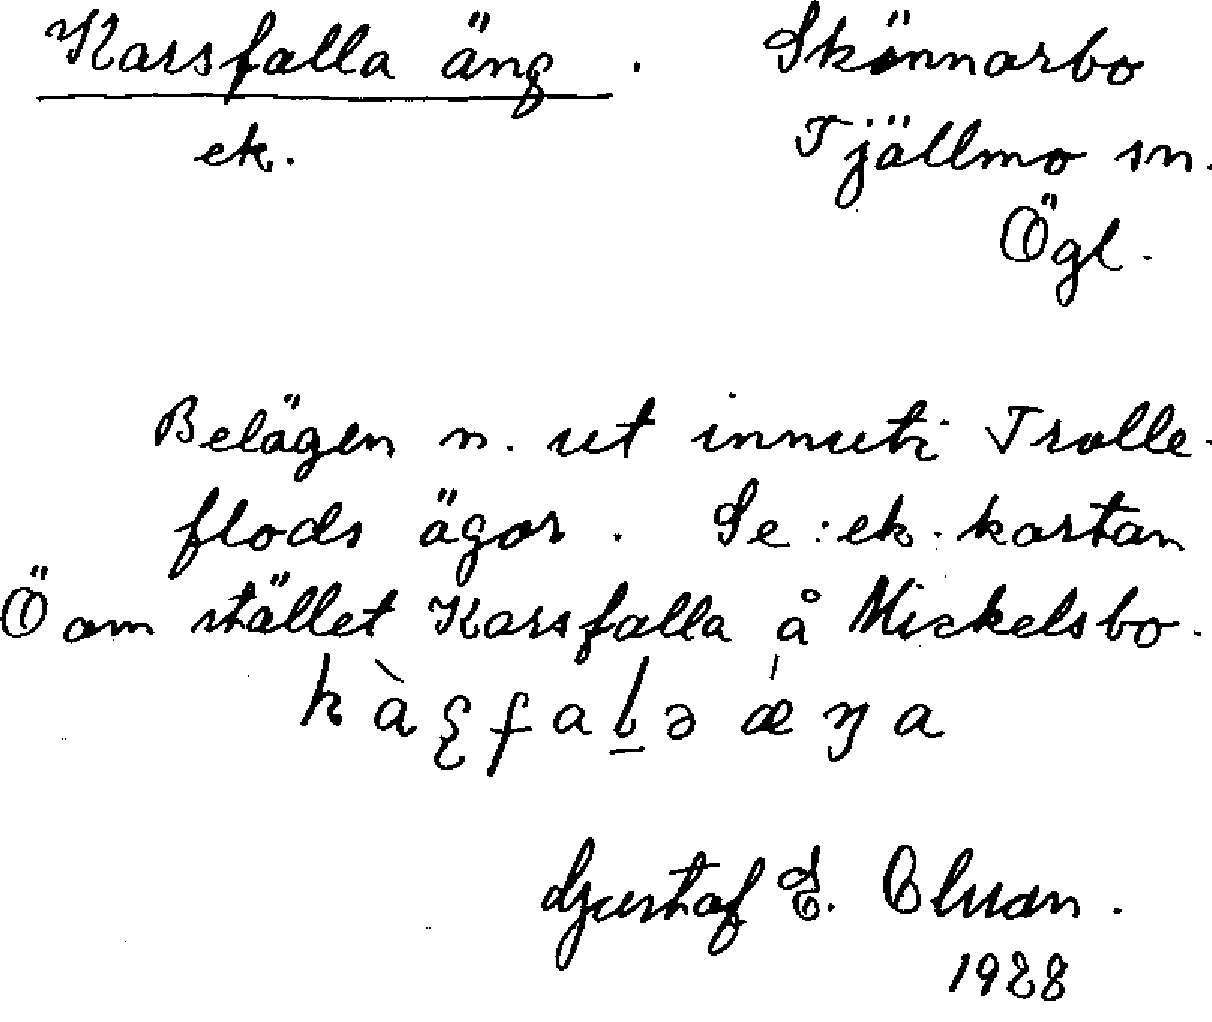 Karsfalla äng. Skönnarbo
ek. Tjällmo sn.
Ögl.
Belägen n. ut innuti Trolle-
flods ägor. Se: ek. kartan
Ö om stället Karsfalla å Mickelsbo.
Gustaf E.
1928